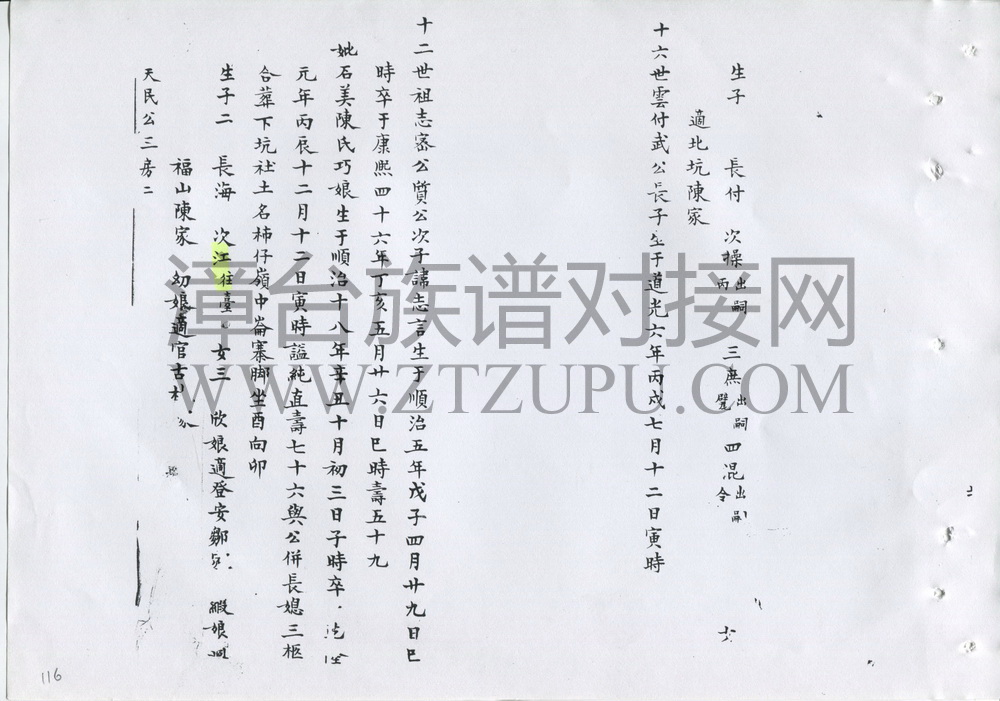 生子 長付 次操出嗣丙 三熊出嗣躄 四混出嗣令
適北坑陳家
十六世雲付武公長子生于道光六年丙戌七月十二日寅時
十二世祖志審公質公次子諱志言生于順治五年戊子四月廿九日巳
時卒于康熙四十六年丁亥五月廿六日巳時壽五十九
妣石美陳氏巧娘生于順治十八年辛丑十月初三日子時卒
元年丙辰十二月十二日寅時謚純直壽七十六與公併長媳三柩
合葬下坑社土名柿仔嶺中崙寨脚坐酉向卯
生子二 長海 次江往臺 女三 欣娘適登安鄒 緞娘
福山陳家 幼娘適官古
天民公三房二
116
漳台族谱对接网
WWW.ZTZUPU.COM